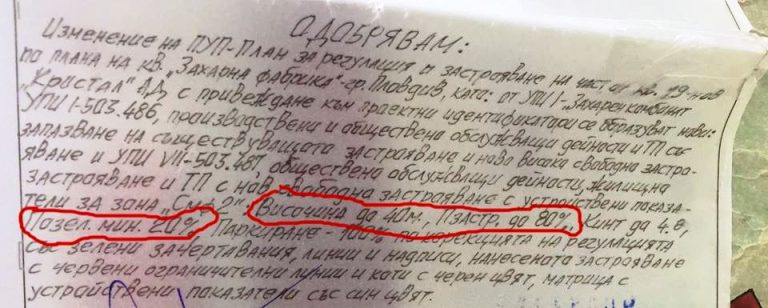 ОДОБРЯВАМ:
Изменение на ПУП-План за регулация и застрояване на част от кв. 19-нов
по плана на кв. „Захарна фабрика"-гр. Пловдив, като: от УПИ I-„Захарен комбинат
"Кристал" АД, с привеждане към проектни идентификатори се образуват нови:
УПИ I-503.486, производствени и обществено обслужващи дейности и ТП със
запазване на съществуващата застрояване и ново високо свободно застро-
яване и УПИ VII-503.487, обществено обслужващи дейности, жилищно
застрояване и ТП с ново свободно застрояване с устройствени показа-
тели за зона „Смф2": Височина до 40м., Пзастр. до 80%, Кинт до 4.0,
Позел. мин. 20%, Паркиране - 100% по корекцията на регулацията
със зелени зачертавания, линии и надписи, нанесената застрояване
с червени ограничителни линии и коти с черен цвят, матрица с
устройствени показатели със син цвят.